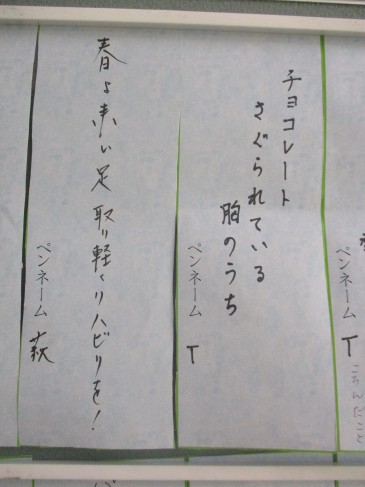 チョコレート
さぐられている
胸のうち
ペンネーム T
春よ来い足取り軽くリハビリを!
ペンネーム 萩
ペンネーム T